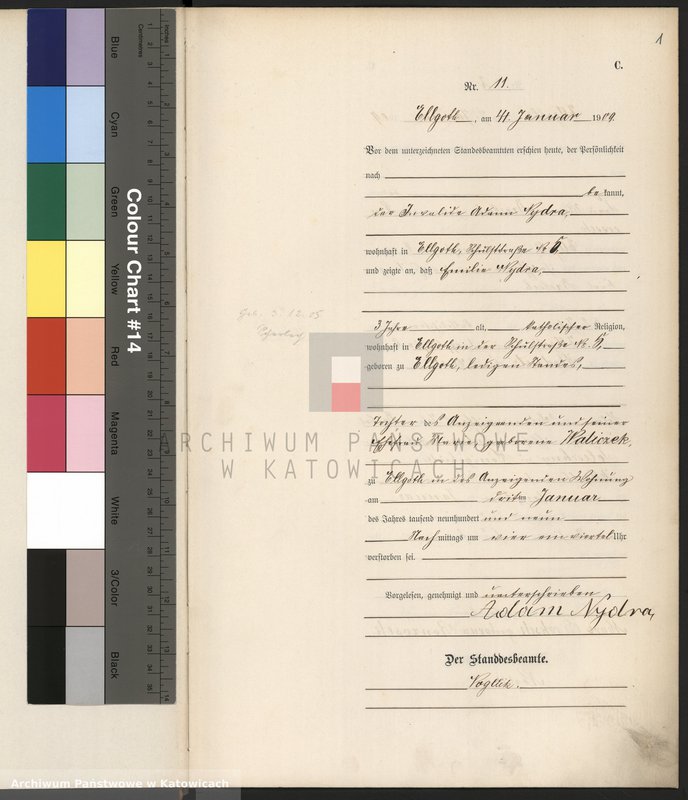 1
C.
Nr. 11.
Ellgoth, am 4. Januar 1909.
Vor dem unterzeichneten Standesbeamten erschien heute, der Persönlichkeit
nach
bekannt,
der Invalide Adam Nydra,
wohnhaft in Ellgoth, Schulstraße № 5,
und zeigte an, daß Emilie Nydra,
Geb. 3.12.05
3 Jahre alt, katholischer Religion,
wohnhaft in Ellgoth in der Schulstraße № 5,
geboren zu Ellgoth, ledigen Standes,
Tochter des Anzeigenden und seiner
Ehefrau Marie, geborene Waliczek,
zu Ellgoth in des Anzeigenden Wohnung
am dritten Januar
des Jahres tausend neunhundert und neun
Nachmittags um vier ein viertel Uhr
verstorben sei.
Vorgelesen, genehmigt und unterschrieben
Adam Nydra,
Der Standdesbeamte.
ARCHIWUM PAŃSTWOWE
W KATOWICACH
Archiwum Państwowe w Katowicach
Colour Chart #14
Blue
Cyan
Green
Yellow
Red
Magenta
White
3/Color
Black
Inches
Centimetres